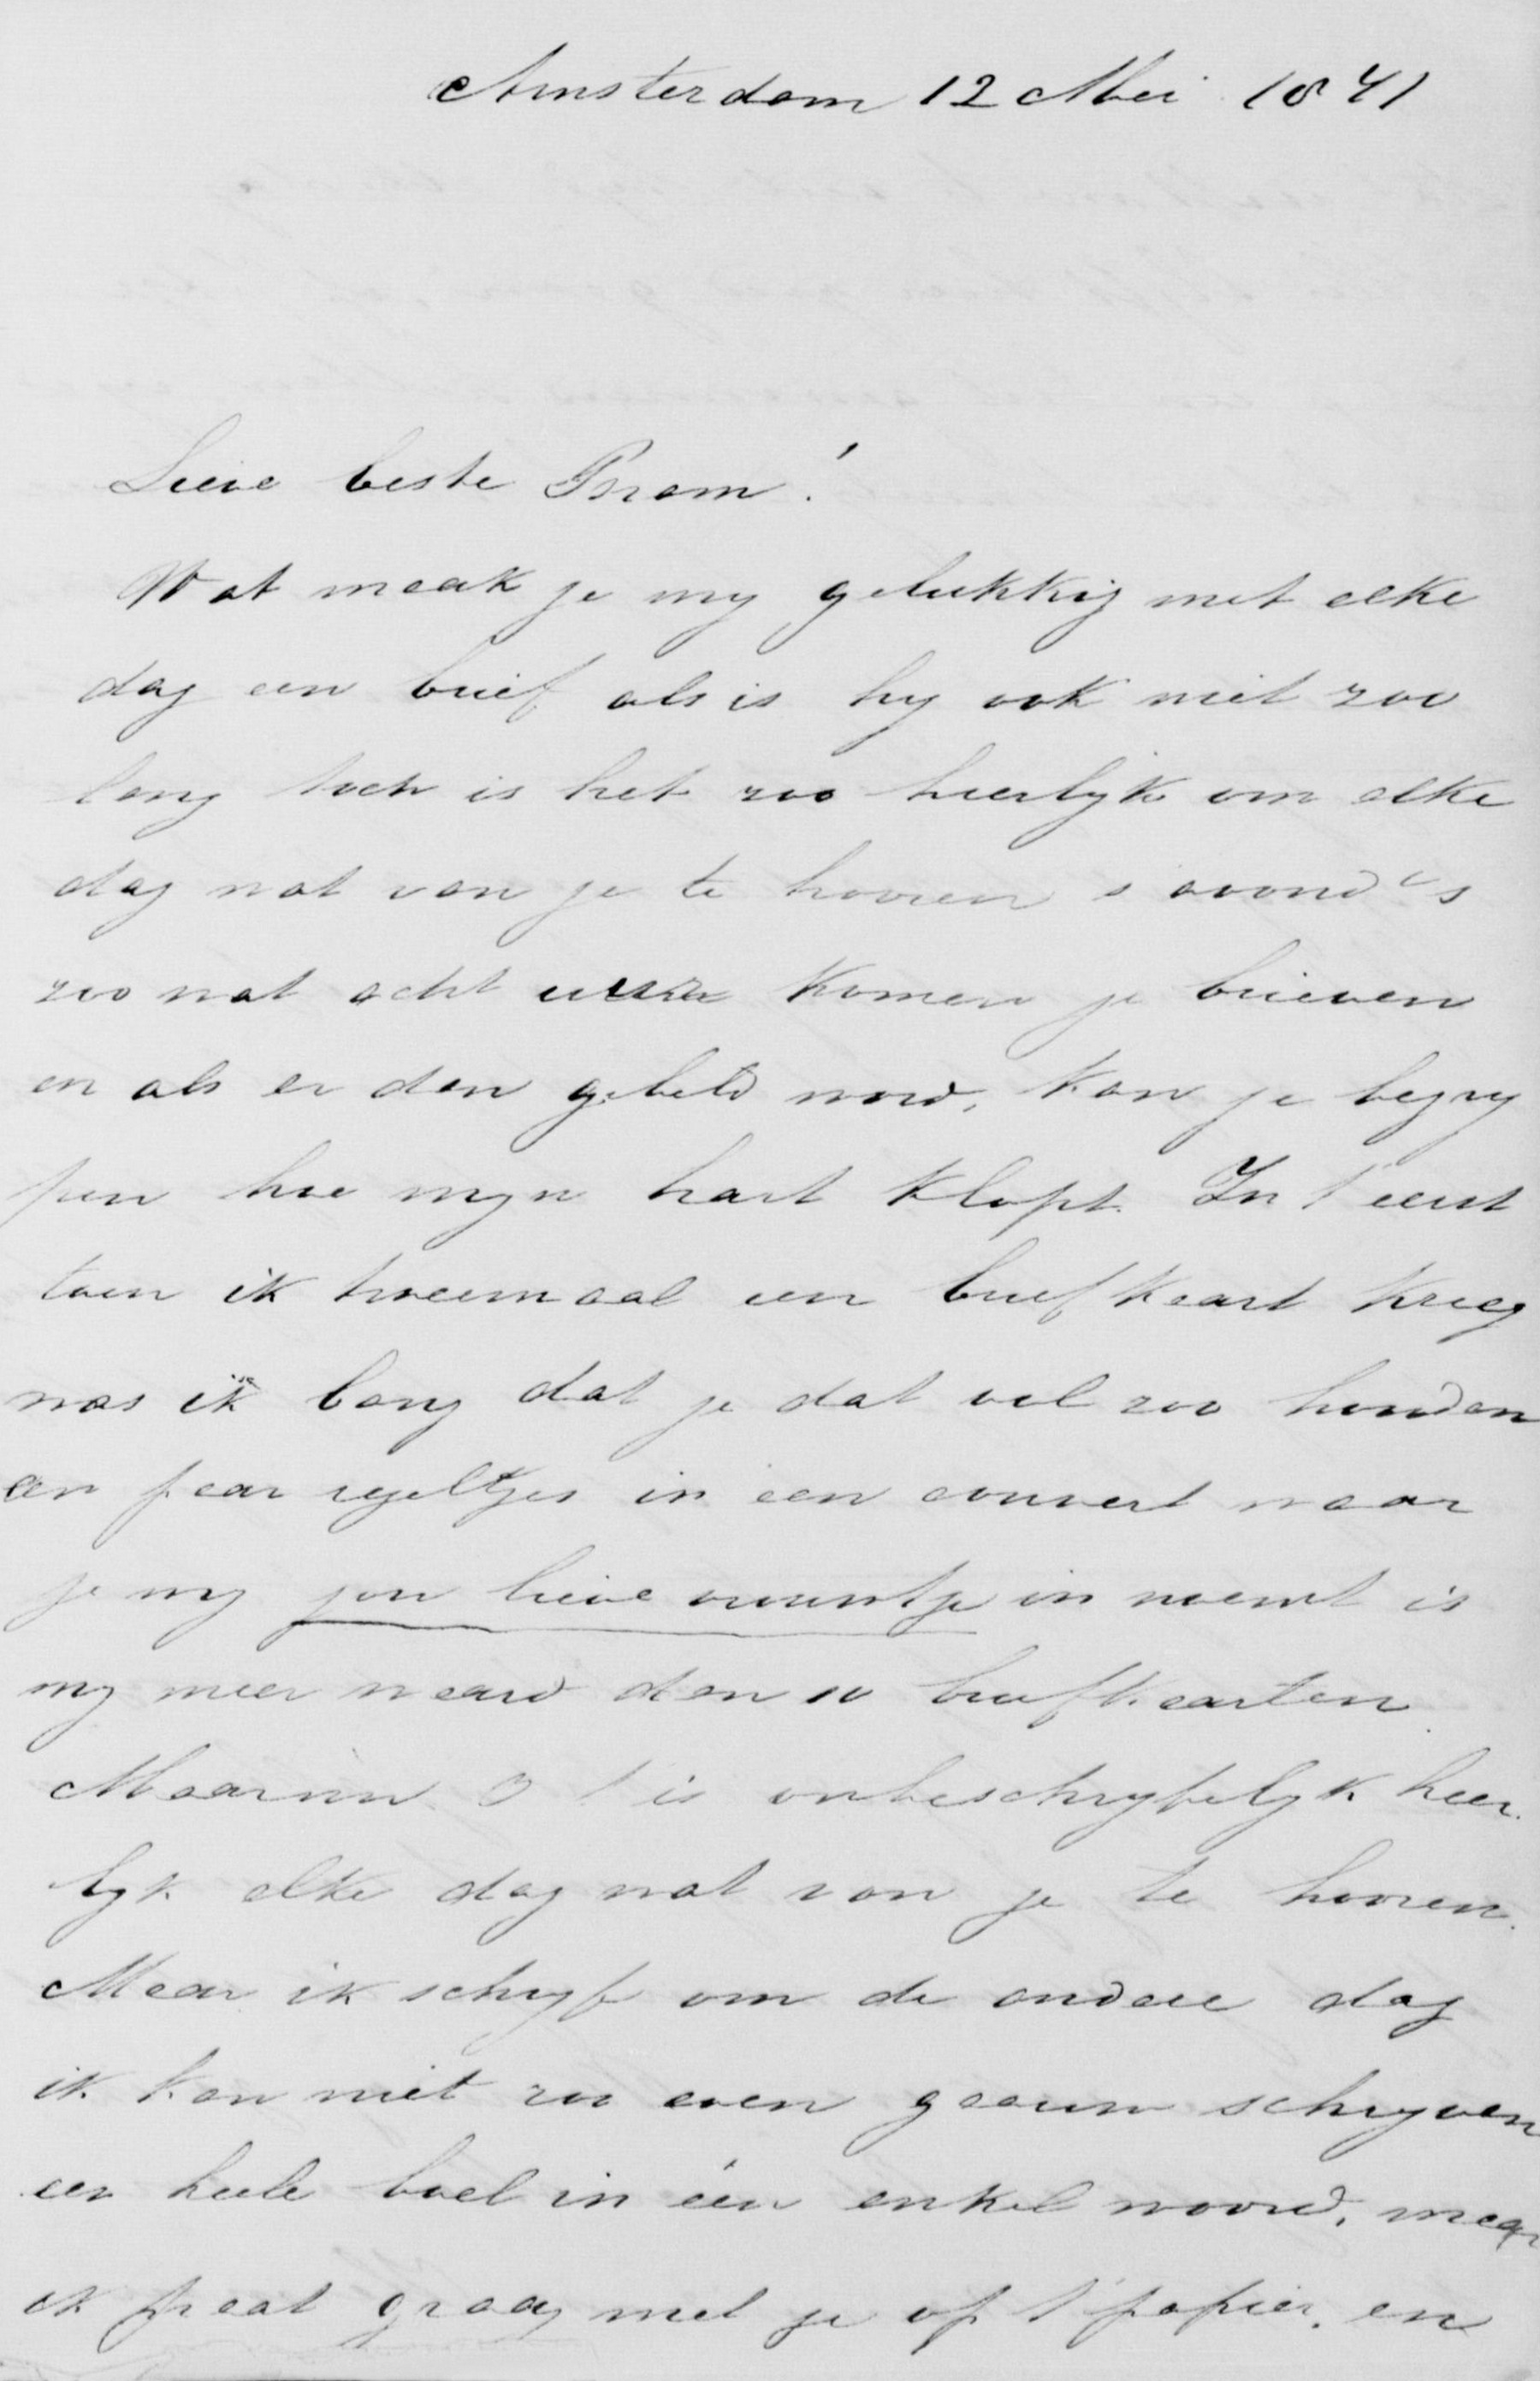 Amsterdam 12 Mei 1871
Lieve beste Bram!
Wat maak je my gelukkig met elke
dag een brief als is hy ook niet zoo
lang toch is het zoo heerlyk om elke
dag wat van je te hooren s avond's
zoo wat acht uur komen je brieven
en als er dan gebeld word, kan je begry
pen hoe myn hart klopt. In 't eerst
toen ik tweemaal een briefkaart kreeg
was ik bang dat je dat vol zoo houden
een paar regeltjes in een couvert waar
je my jou lieve vrouwtje in noemt is
my meer waard dan 10 briefkaarten
Maar nu O 't is onbeschryfelyk heer
lyk elke dag wat van je te hooren.
Maar ik schryf om de andere dag
ik kan niet zoo even gaauw schryven
een heele boel in één enkel woord, maar
ik praat graag met je op 't papier. en